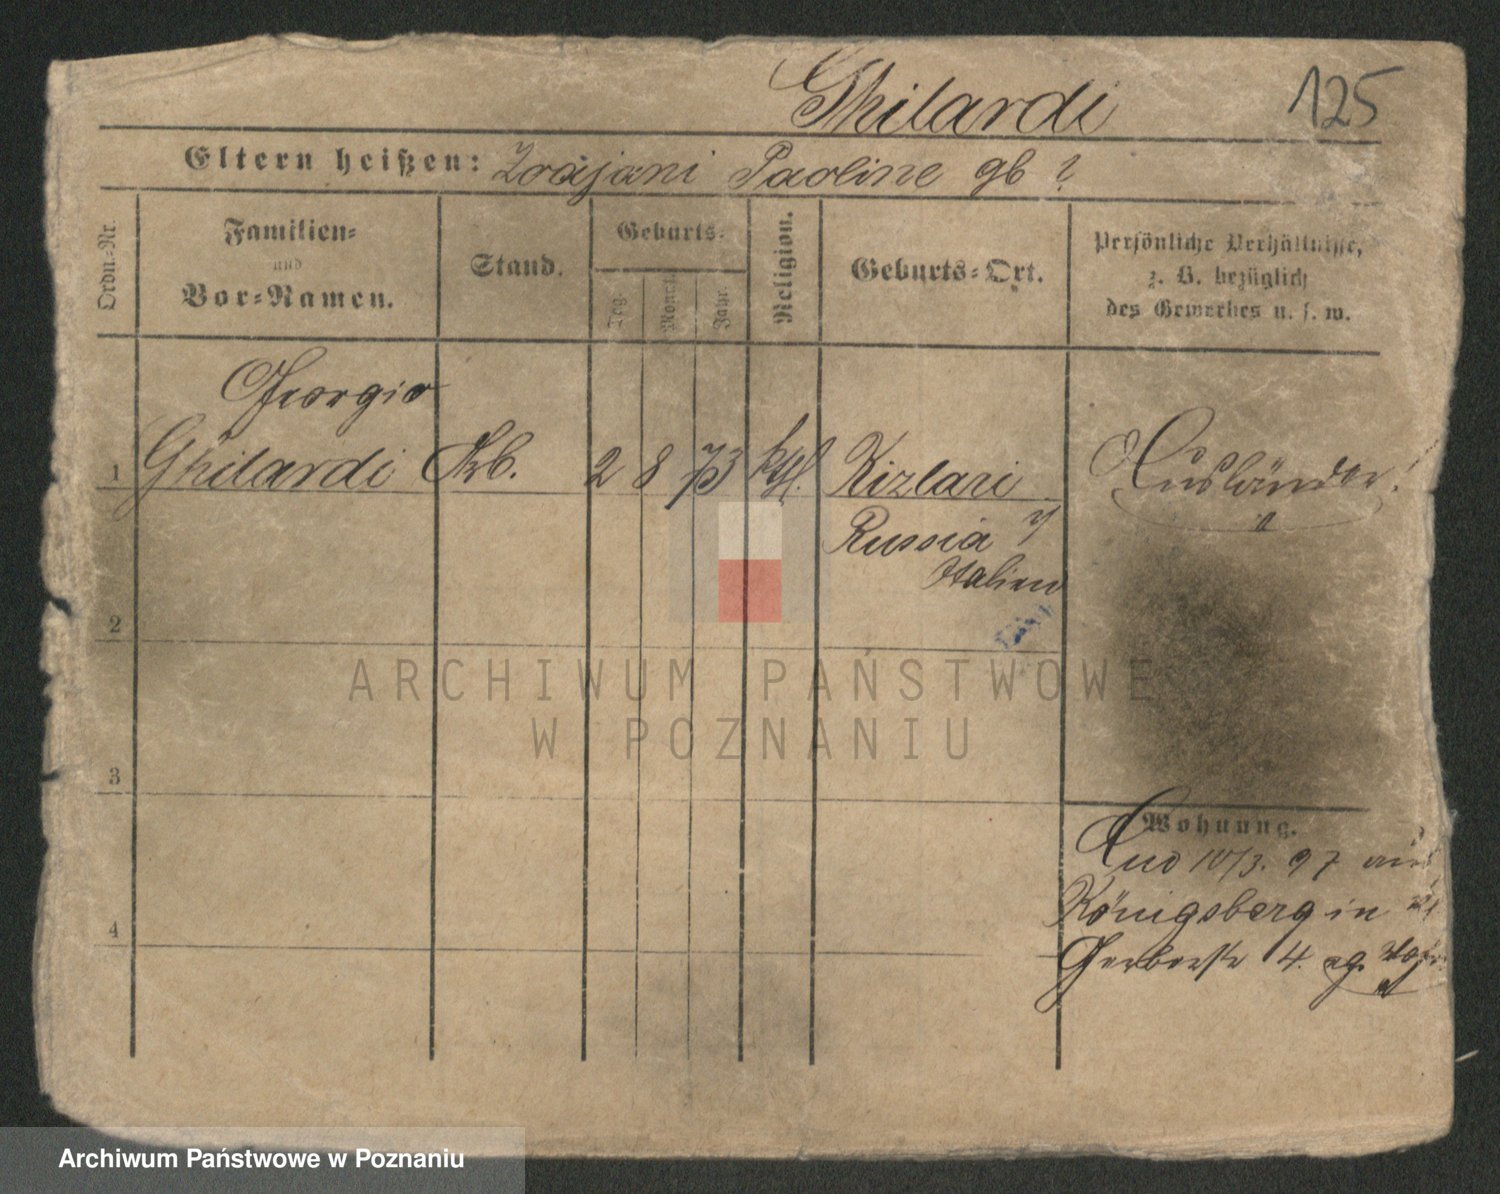 Ghilardi
125
Eltern heißen: Paoline gb ?
Ordn.-Nr.
Familien-
und
Vor-Namen.
Stand.
Geburts-
Tag.
Monat.
Jahr.
Religion.
Geburts-Ort.
Persönliche Verhältnisse,
z. B. bezüglich
des Gewerbes u. s. w.
Georgio
1 Ghilardi 2 8 73 ktl. Kizlari Ausländer!
Russia
Italien
2
3
4
Wohnung.
10/3. 97 aus
Königsberg in
Gerberstr 4.
ARCHIWUM PAŃSTWOWE
W POZNANIU
Archiwum Państwowe w Poznaniu